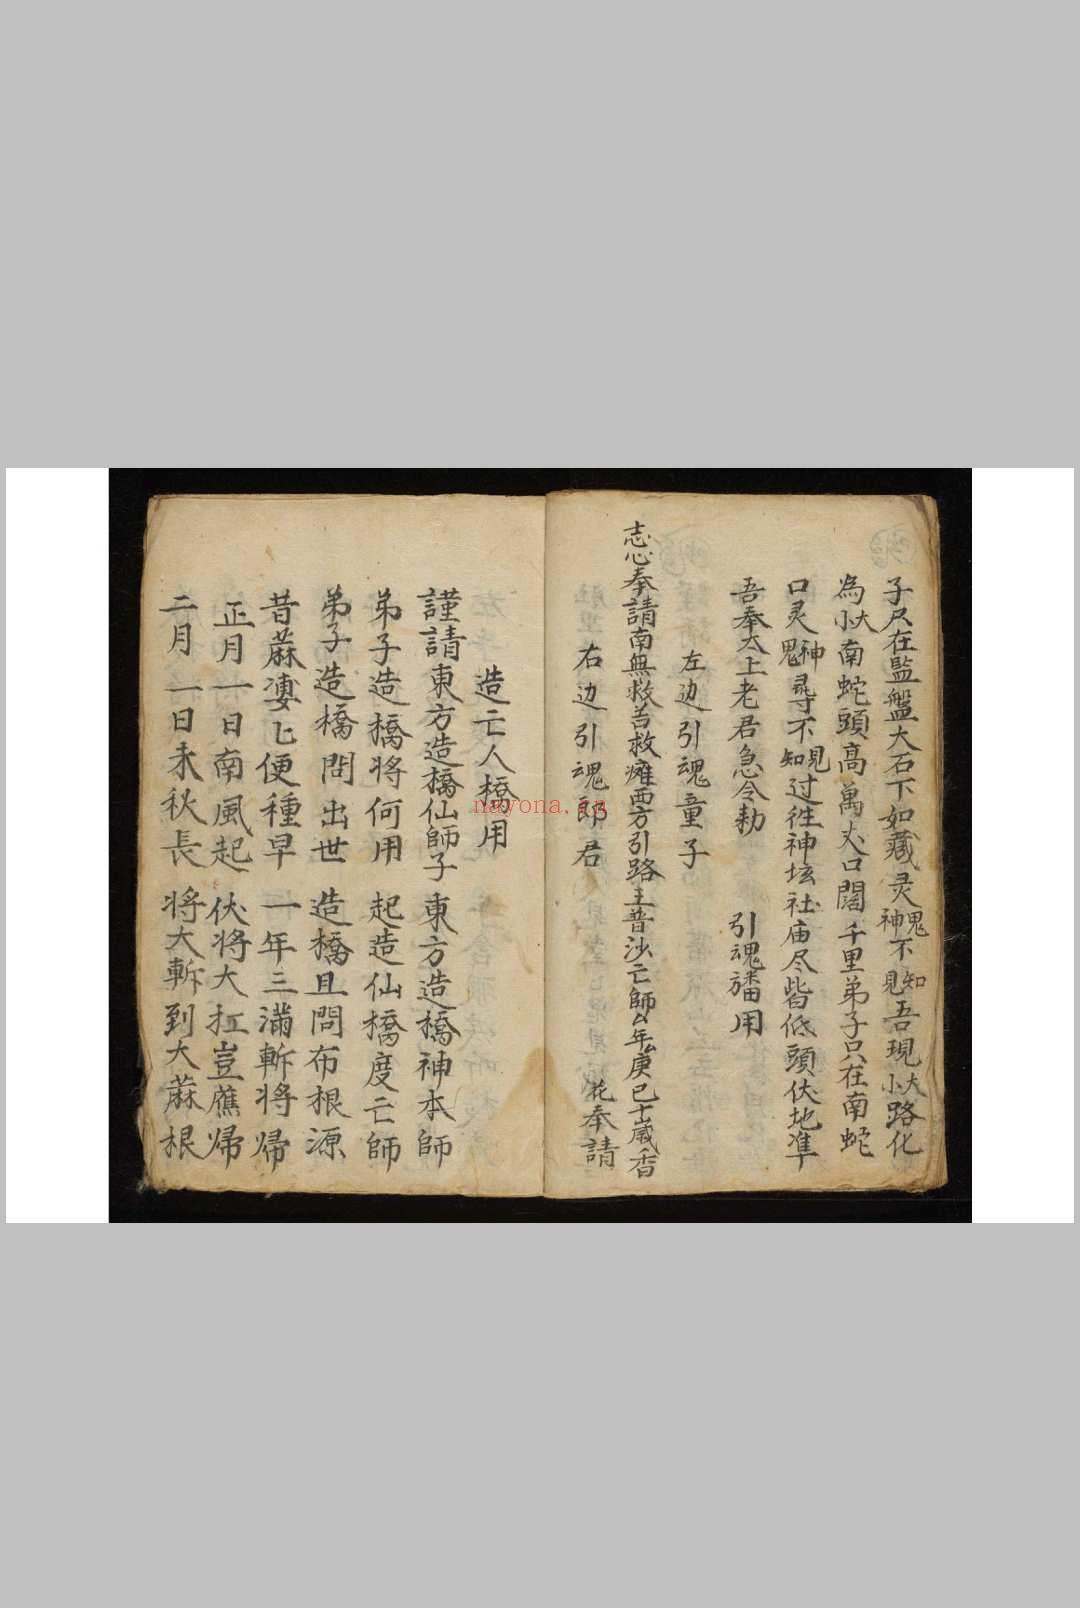 子尺在監盤大石下如藏灵神鬼不見知吾現小大路化
為小大南蛇頭高萬丈口闊千里弟子只在南蛇
口灵鬼神尋不知見过往神坛社庙尽皆低頭伏地准
吾奉太上老君急令勅
引魂旙用
左边引魂童子
志心奉請南無救苦救难西方引路王普沙亡師厶年厶庚巳十歲香
花奉請
右边引魂郎君
造亡人橋用
謹請東方造橋仙師子 東方造橋神本師
弟子造橋將何用 起造仙橋度亡師
弟子造橋問出世 造橋且問布根源
昔蔴凄匕便種早 一年三滿斬將歸
正月一日南風起 伏將大扛豈蕉歸
二月一日未秋長 將大斬到大蔴根
nayona.cn